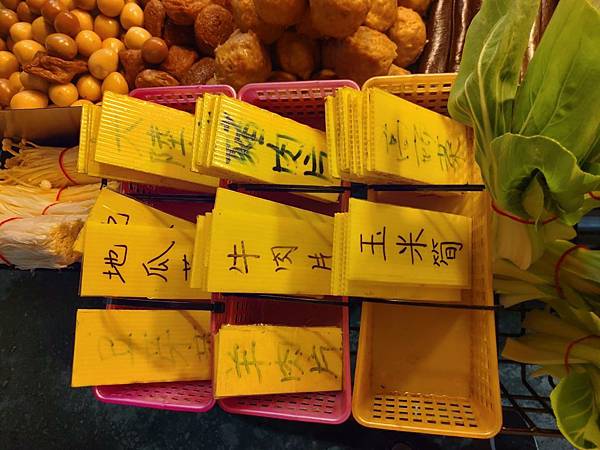 大陸
豬肉片
高麗菜
地瓜
牛肉片
玉米筒
羊肉片